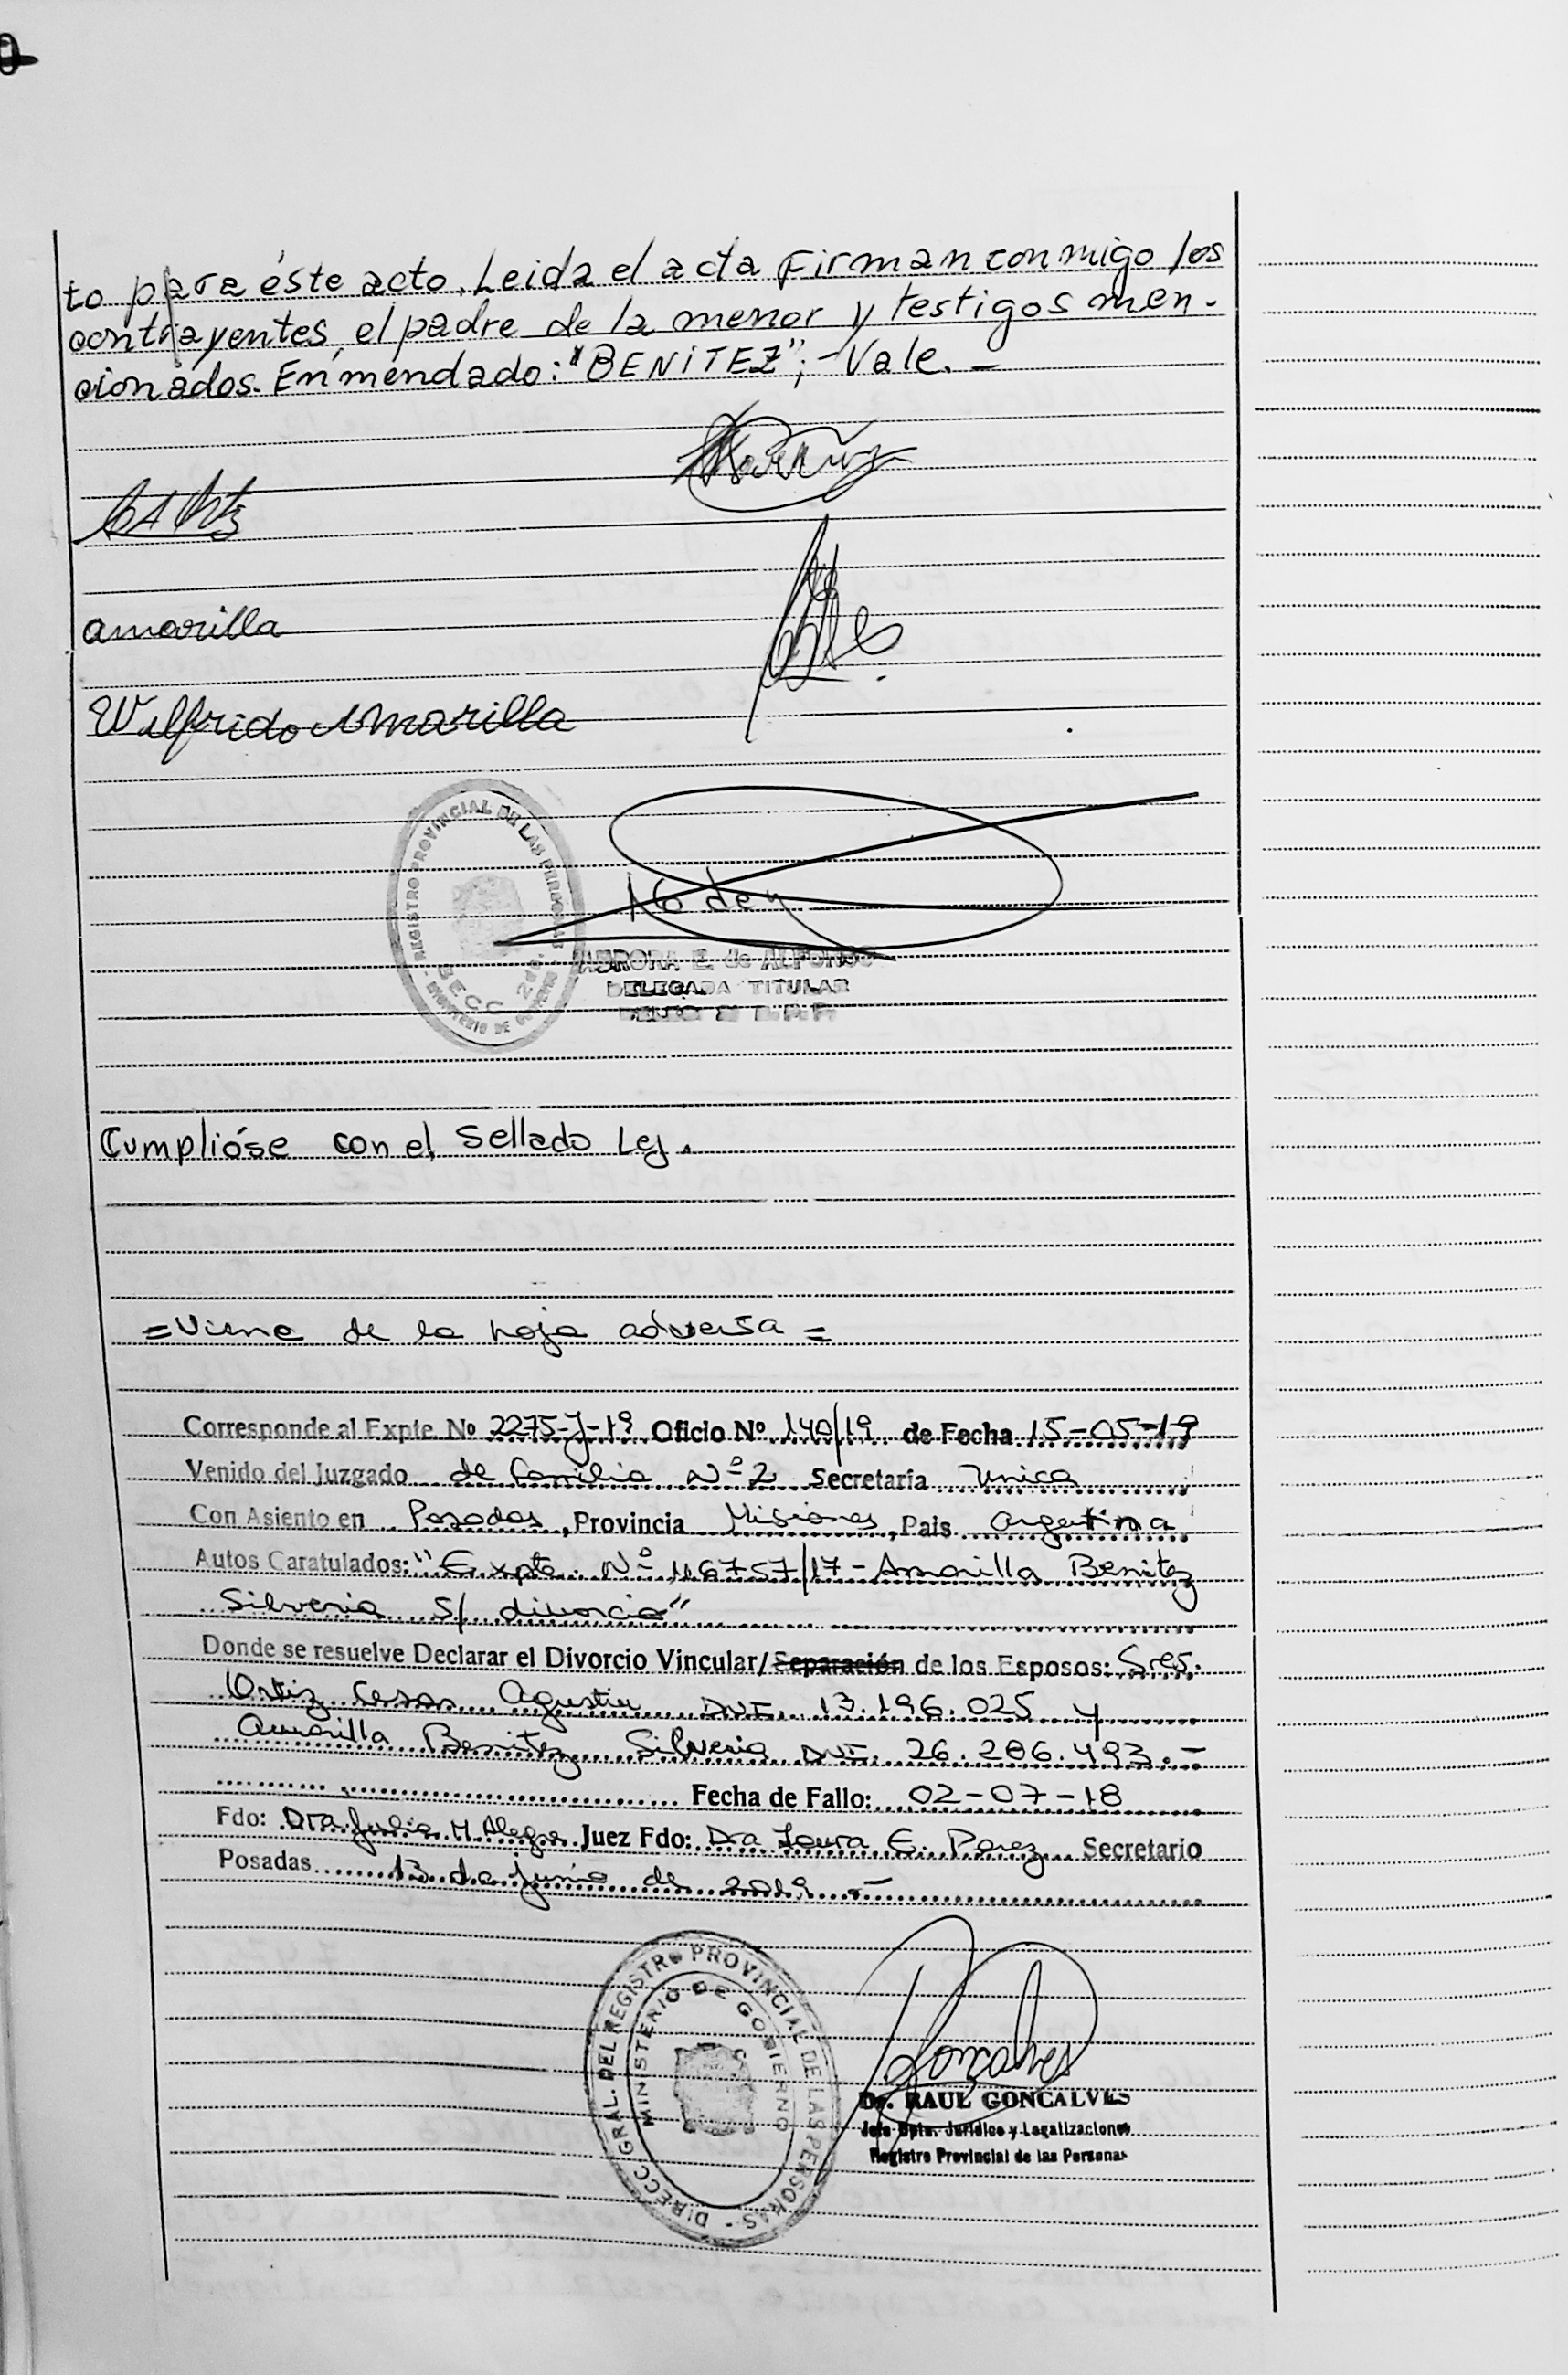 to para éste acto. Leida el acta Firman conmigo los
contrayentes, el padre de la menor y testigos men-
cionados. Enmendado: "BENITEZ"; - Vale. -
amarilla
Wilfrido Amarilla
REGISTRO PROVINCIAL DE LAS PERSONAS
SECC. 2da.
MINISTERIO DE GOBIERNO
AURORA E. de ALFONSO
DELEGADA TITULAR
Cumplióse con el Sellado Ley.
= Viene de la hoja adversa =
Corresponde al Expte. Nº 2275-J-19 Oficio Nº 140/19 de Fecha 15-05-19
Venido del Juzgado de Familia Nº 2 Secretaría Unica
Con Asiento en Posadas, Provincia Misiones, Pais Argentina
Autos Caratulados: "Expte. Nº 116757/17 - Amarilla Benitez
Silveria S/ divorcio"
Donde se resuelve Declarar el Divorcio Vincular/Separación de los Esposos: Sres.
Ortiz Cesar Agustin DNI. 13.196.025 y
Amarilla Benitez Silveria DNI. 26.286.493.-
Fecha de Fallo: 02-07-18
Fdo: Dra Julia M. Alegre Juez Fdo: Dra Laura E. Perez Secretario
Posadas 13 de junio de 2019.-
DIRECC. GRAL. DEL REGISTRO PROVINCIAL DE LAS PERSONAS -
MINISTERIO DE GOBIERNO
Goncalves
Dr. RAUL GONCALVES
Jefe Dpto. Jurídico y Legalizaciones
Registro Provincial de las Personas